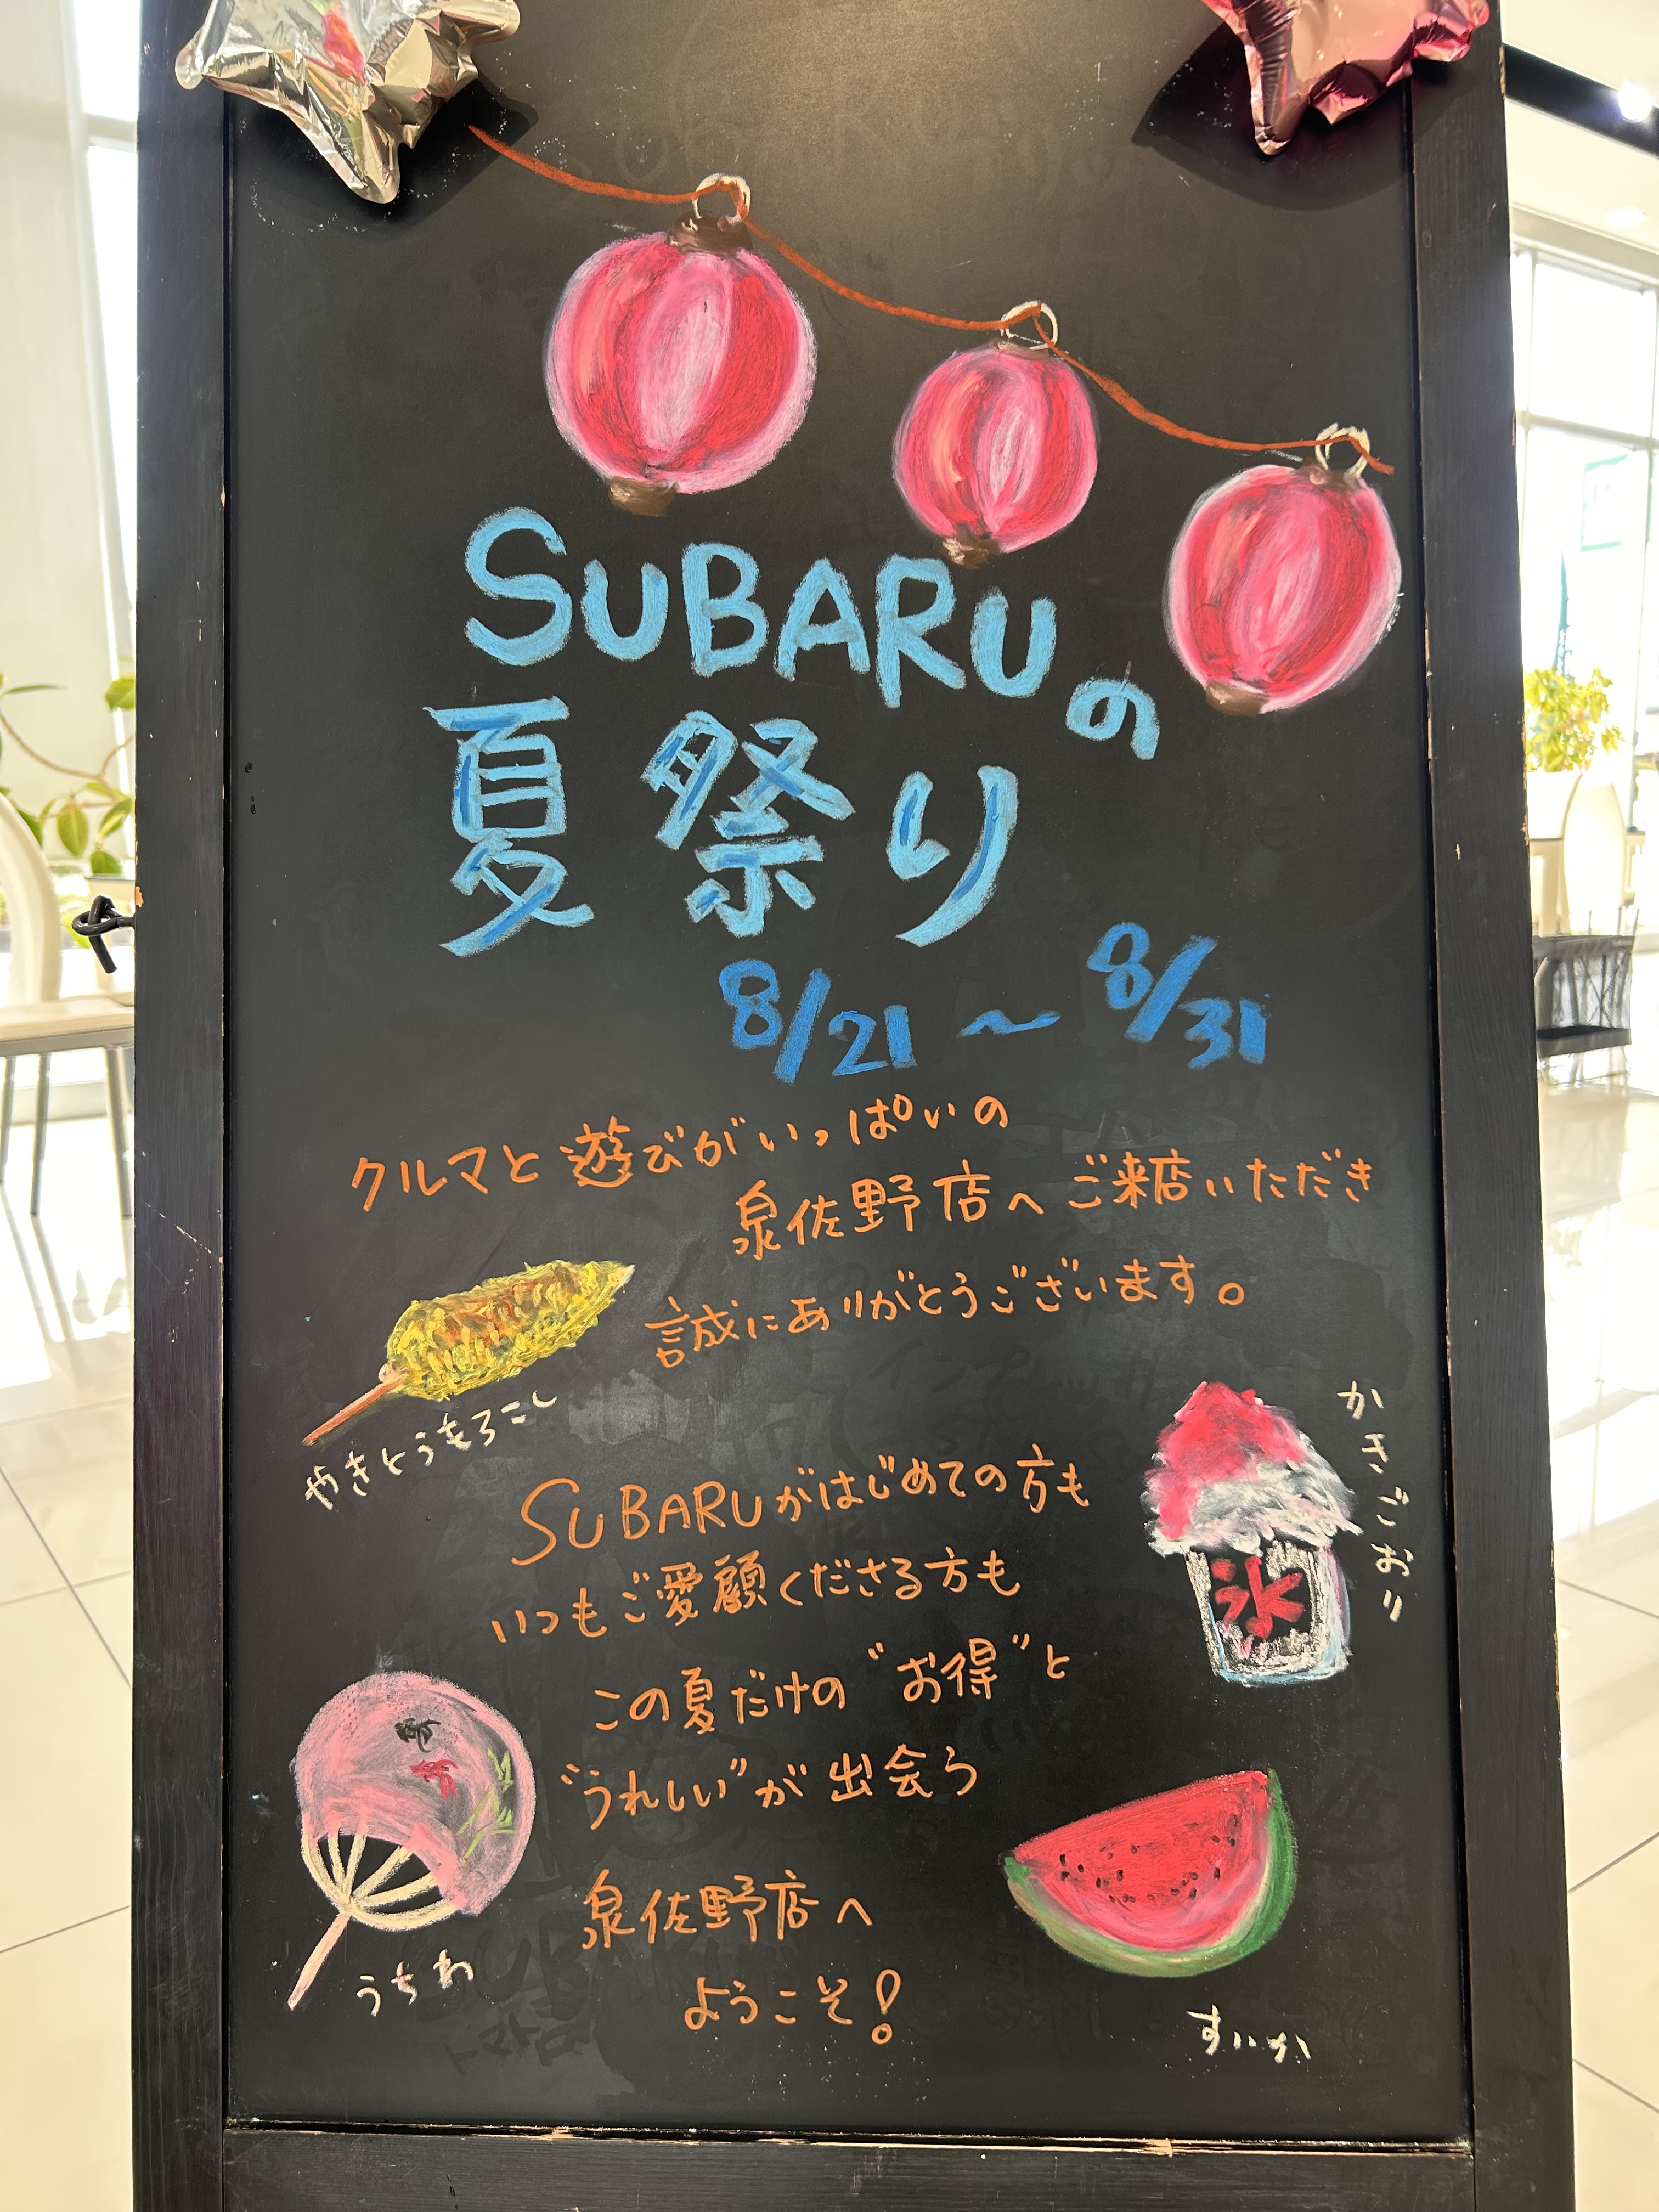 SUBARUの
夏祭り
8/21～8/31
クルマと遊びがいっぱいの
泉佐野店へご来店いただき
誠にありがとうございます。
やきとうもろこし
かきごおり
氷
SUBARUがはじめての方も
いつもご愛顧くださる方も
この夏だけの"お得"と
"うれしい"が出会う
泉佐野店へ
ようこそ!
うちわ
すいか